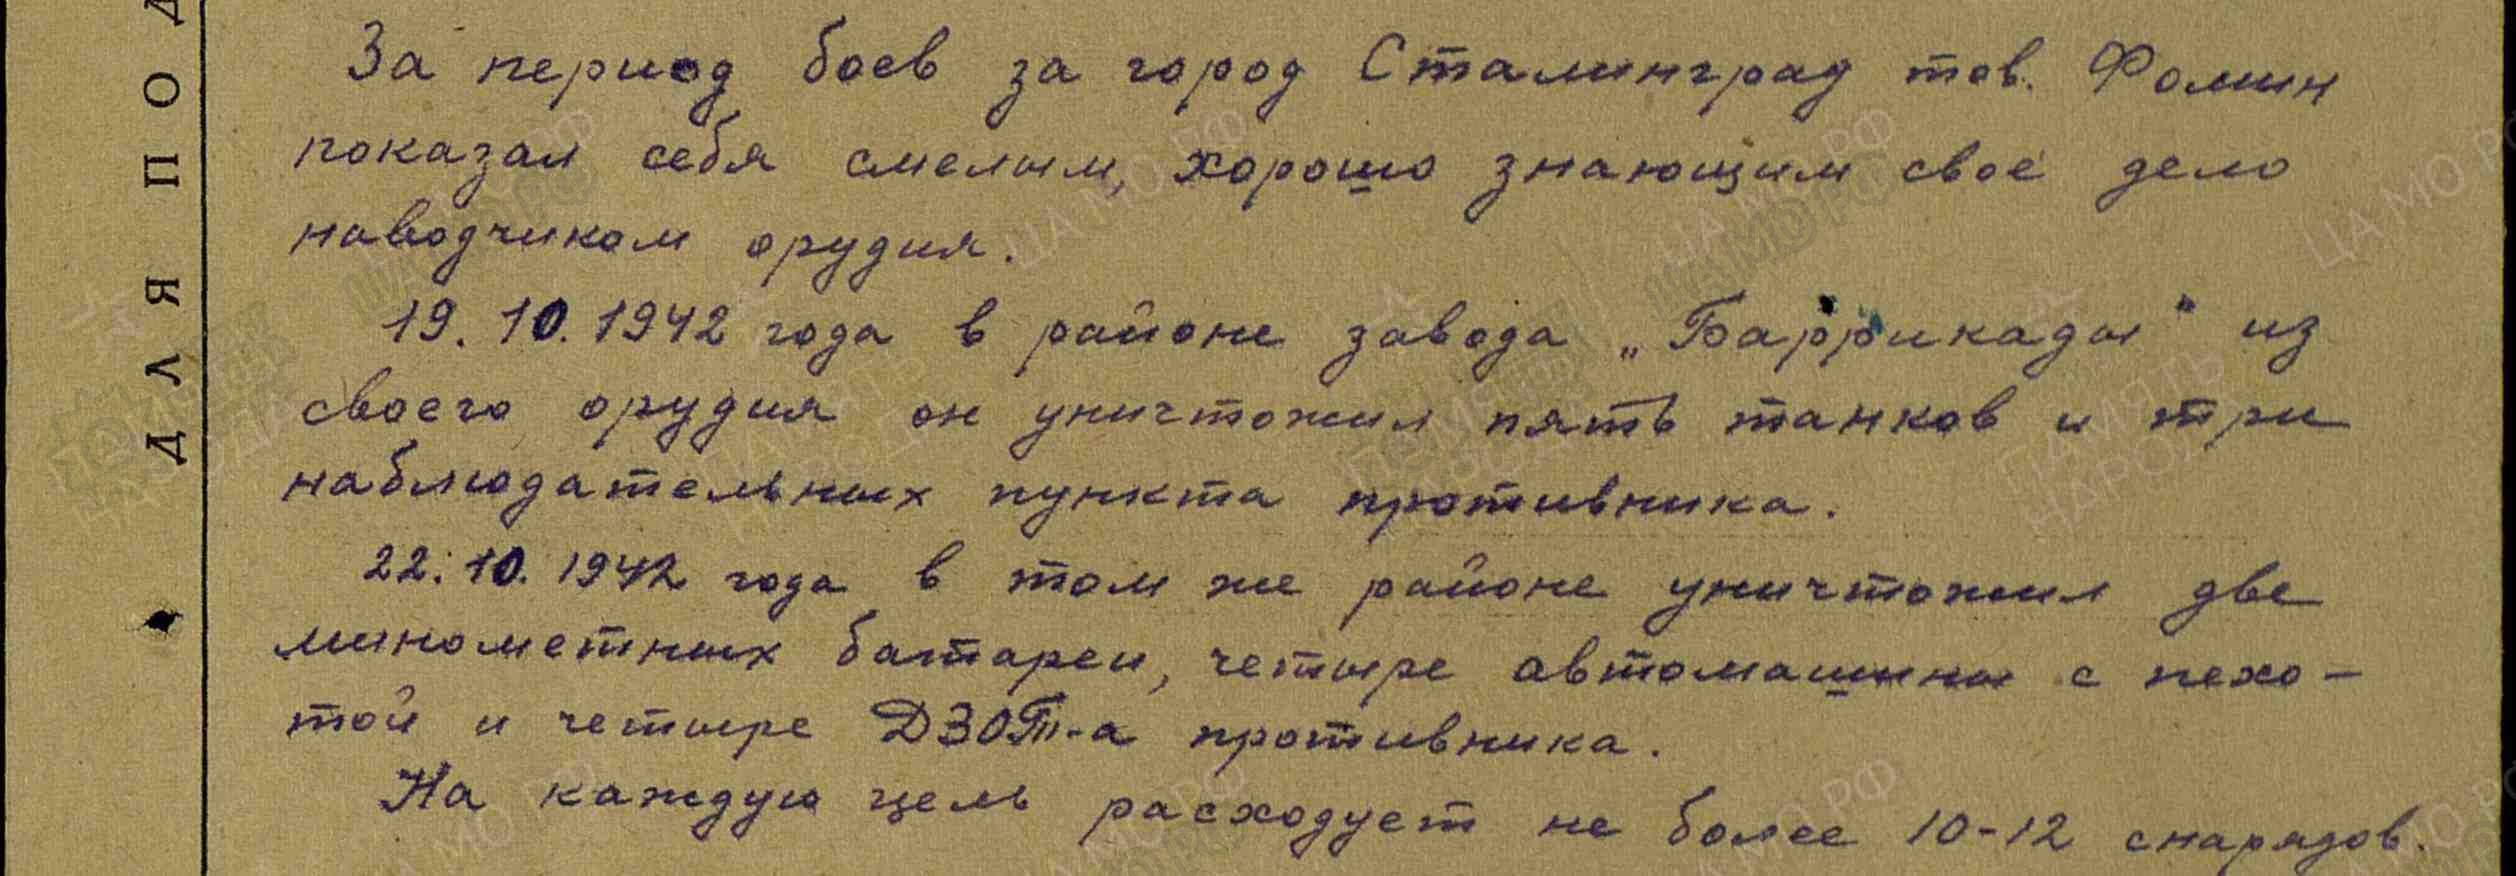 За период боев за город Сталинград тов. Фомин
показал себя смелым, хорошо знающим свое дело
наводчиком орудия.
19.10.1942 года в районе завода „Баррикады" из
своего орудия он уничтожил пять танков и три
наблюдательных пункта противника.
22.10.1942 года в том же районе уничтожил две
минометных батареи, четыре автомашины с пехо-
той и четыре ДЗОТ-а противника.
На каждую цель расходует не более 10-12 снарядов.
ДЛЯ ПОД
ЦАМО РФ
ПАМЯТЬ НАРОДА